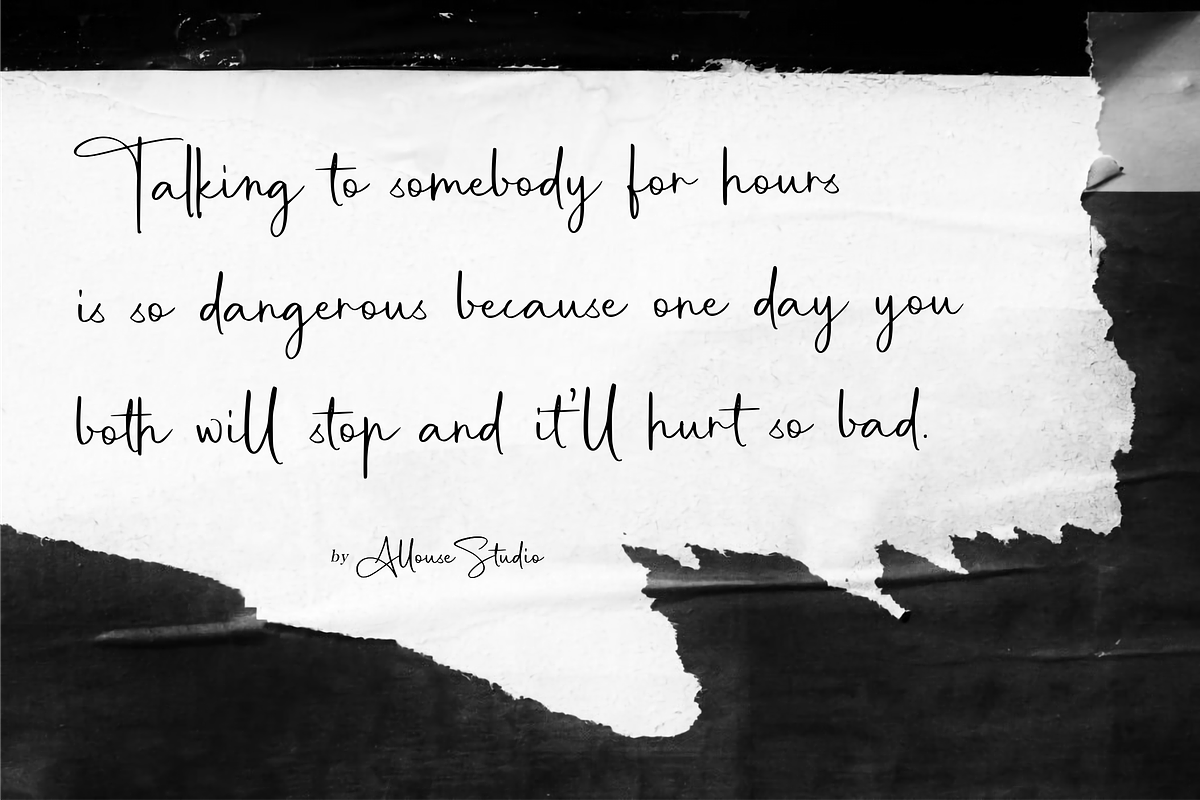 Talking to somebody for hours
is so dangerous because one day you
both will stop and it'll hurt so bad.
by Allouse Studio